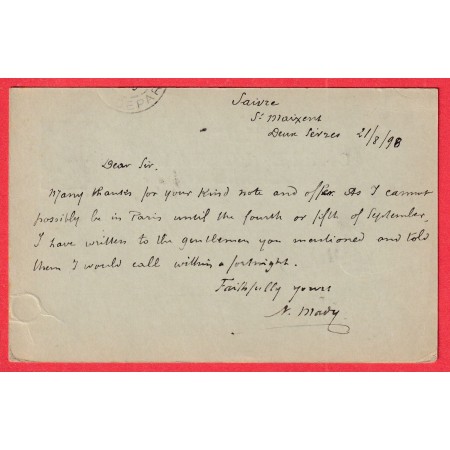 DEPAR
Saivre
St Maixent
Deux Sèvres 21/8/98
Dear Sir.
Many thanks for your kind note and offer. As I cannot
possibly be in Paris until the fourth or fifth of September.
I have written to the gentlemen you mentioned and told
them I would call within a fortnight.
Faithfully yours
A. Mady